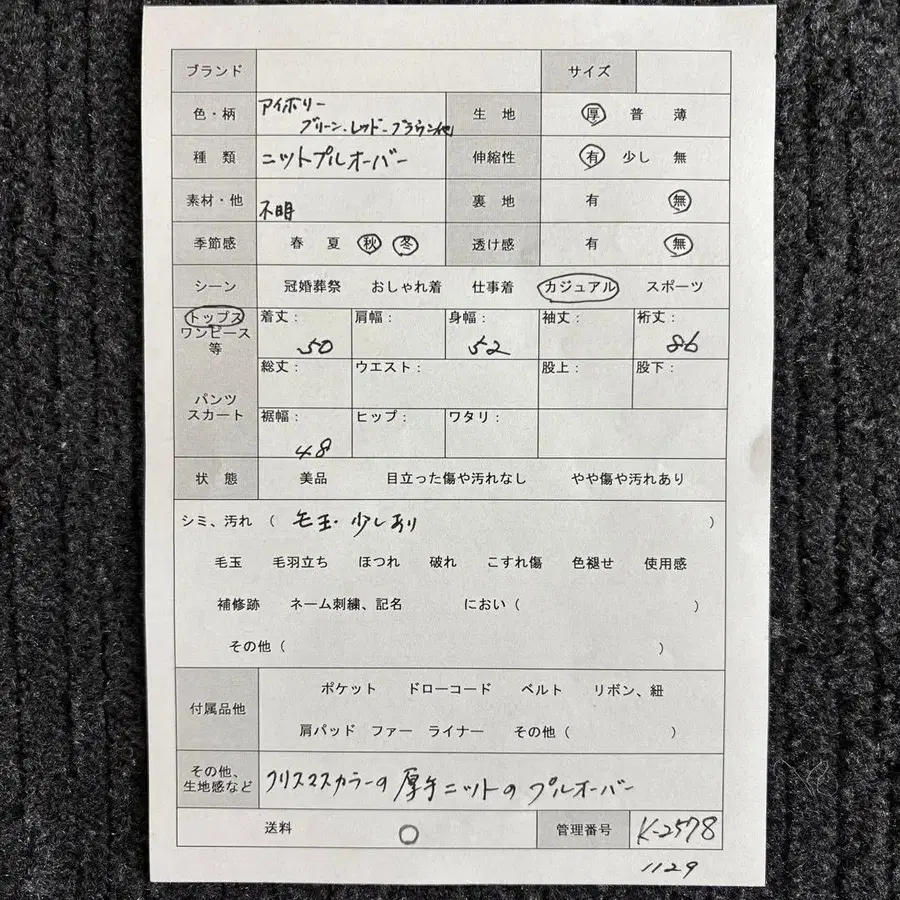 ブランド サイズ
色・柄 アイボリー 生地 厚 普 薄
グリーン・レッド・ブラウン他
種類 ニットプルオーバー 伸縮性 有 少し 無
素材・他 不明 裏地 有 無
季節感 春 夏 秋 冬 透け感 有 無
シーン 冠婚葬祭 おしゃれ着 仕事着 カジュアル スポーツ
トップス 着丈： 肩幅： 身幅： 袖丈： 裄丈：
ワンピース
等 50 52 86
総丈： ウエスト： 股上： 股下：
パンツ
スカート 裾幅： ヒップ： ワタリ：
48
状態 美品 目立った傷や汚れなし やや傷や汚れあり
シミ、汚れ （ 毛玉・少しあり ）
毛玉 毛羽立ち ほつれ 破れ こすれ傷 色褪せ 使用感
補修跡 ネーム刺繍、記名 におい（ ）
その他（ ）
ポケット ドローコード ベルト リボン、紐
付属品他
肩パッド ファー ライナー その他（ ）
その他、
生地感など クリスマスカラーの厚手ニットのプルオーバー
送料 ○ 管理番号 K-2578
1129